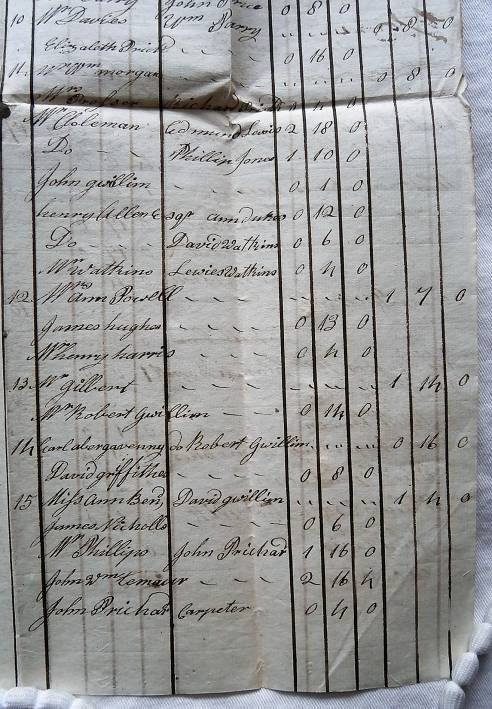 John Price 0 8 0
10 Mr Davies Wm Parry .. .. .. 0 8 0
Elizabeth Prich - - 0 16 0
11 Mr Wm morgan - - .. .. .. 0 8 0
0 4 0
Mr Coleman Edmund Lewis 2 18 0
Do - - Phillip Jones 1 10 0
John gwillim - - - 0 1 0
henry Allen Esqr ann dukes 0 12 0
Do - - - David Watkins 0 6 0
Mr Watkins Lewies Watkins 0 4 0
12 Mrs ann Powell - - - .. .. .. 1 7 0
James hughes - - - 0 13 0
Mr henry harris - - - 0 4 0
13 Mr gilbert - - - .. .. .. 1 14 0
Mr Robert Gwillim - - 0 14 0
14 Earl abergavenny do Robert Gwillim .. .. .. 0 16 0
David griffithes - - - 0 8 0
15 Miss Ann David gwillim .. .. .. 1 4 0
James Nicholls - - - 0 6 0
Mr Phillips John Prichar 1 16 0
John Wm - - - 2 16 4
John Prichar Carpeter 0 4 0